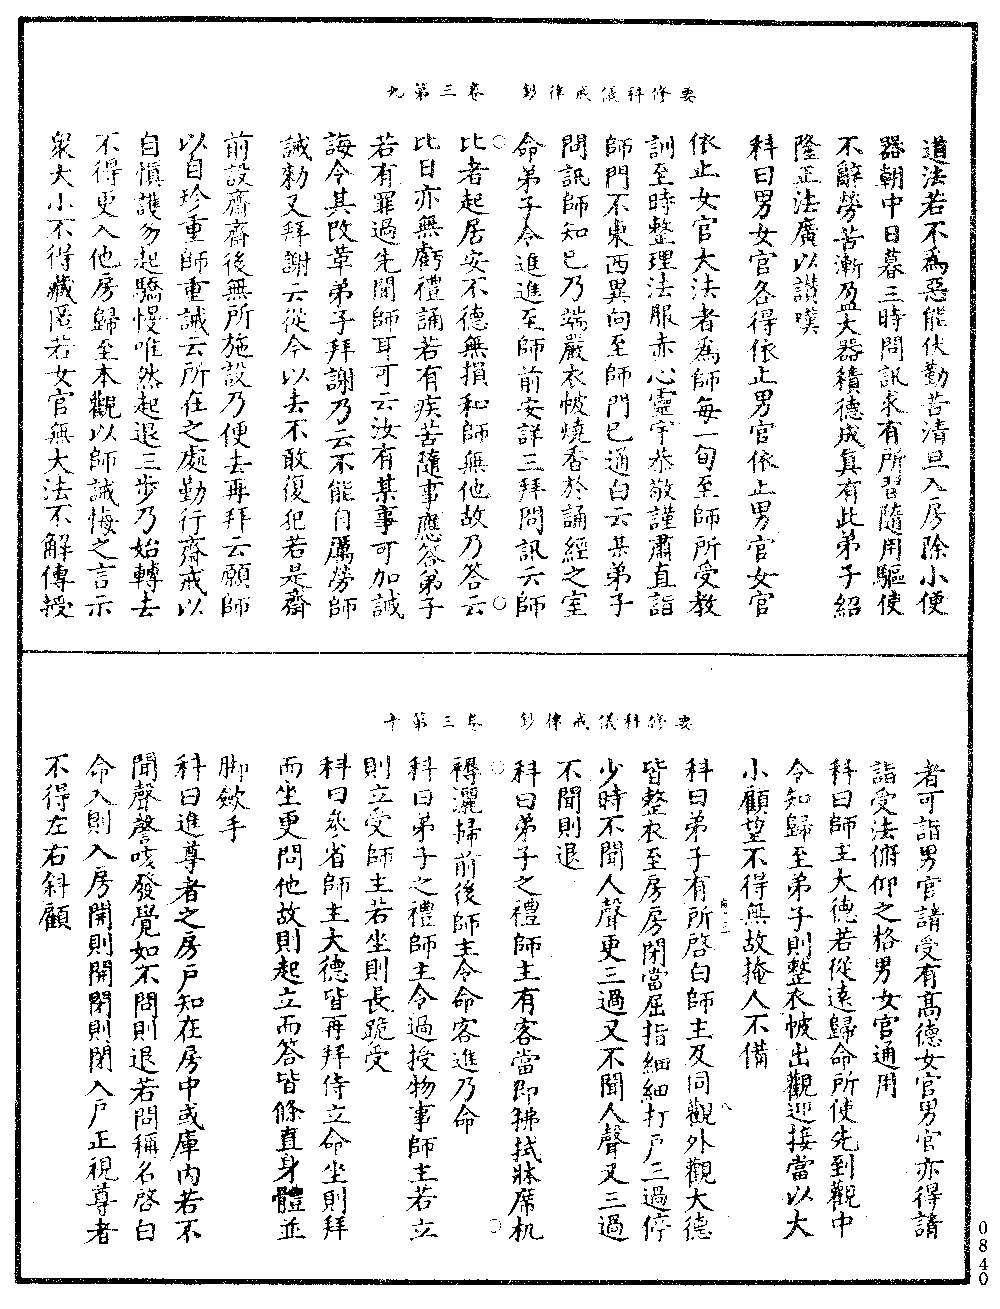 要修科儀戒律鈔　卷三第九
道法若不爲惡能伏勤苦清旦入房除小便
器朝中日暮三時問訊求有所習隨用驅使
不辭勞苦漸盈大器積德成真有此弟子紹
隆正法廣以讃嘆
科曰男女官各得依止男官依止男官女官
依止女官大法者爲師每一旬至師所受教
訓至時整理法服赤心靈宇恭敬謹肅直詣
師門不東西異向至師門已通白云某弟子
問訊師知已乃端嚴衣帔燒香於誦經之室
命弟子令進進至師前安詳三拜問訊云師
比者起居安不德無損和師無他故乃答云
比日亦無虧禮誦若有疾苦隨事應答弟子
若有罪過先聞師耳可云汝有某事可加誡
誨令其改革弟子拜謝乃云不能自厲勞師
誡勑又拜謝云從今以去不敢復犯若是齋
前設齋齋後無所施設乃便去再拜云願師
以自珍重師重誡云所在之處勤行齋戒以
自愼護勿起驕慢唯然起退三步乃始轉去
不得更入他房歸至本觀以師誡悔之言示
衆大小不得藏匿若女官無大法不解傳授
要修科儀戒律鈔　卷三第十
者可詣男官請受有高德女官男官亦得請
詣受法俯仰之格男女官通用
科曰師主大德若從遠歸命所使先到觀中
令知歸至弟子則整衣帔出觀迎接當以大
小顧望不得無故掩人不備
科曰弟子有所啓白師主及同觀外觀大德
皆整衣至房房閉當屈指細細打戶三過停
少時不聞人聲更三過又不聞人聲又三過
不聞則退
科曰弟子之禮師主有客當即拂拭牀席机
褥灑掃前後師主令命客進乃命
科曰弟子之禮師主令過授物事師主若立
則立受師主若坐則長跪受
科曰衆省師主大德皆再拜侍立命坐則拜
而坐更問他故則起立而答皆條直身體並
脚斂手
科曰進尊者之房戶知在房中或庫內若不
聞聲謦咳發覺如不問則退若問稱名啓白
命入則入房開則開閉則閉入戶正視尊者
不得左右斜顧
0840